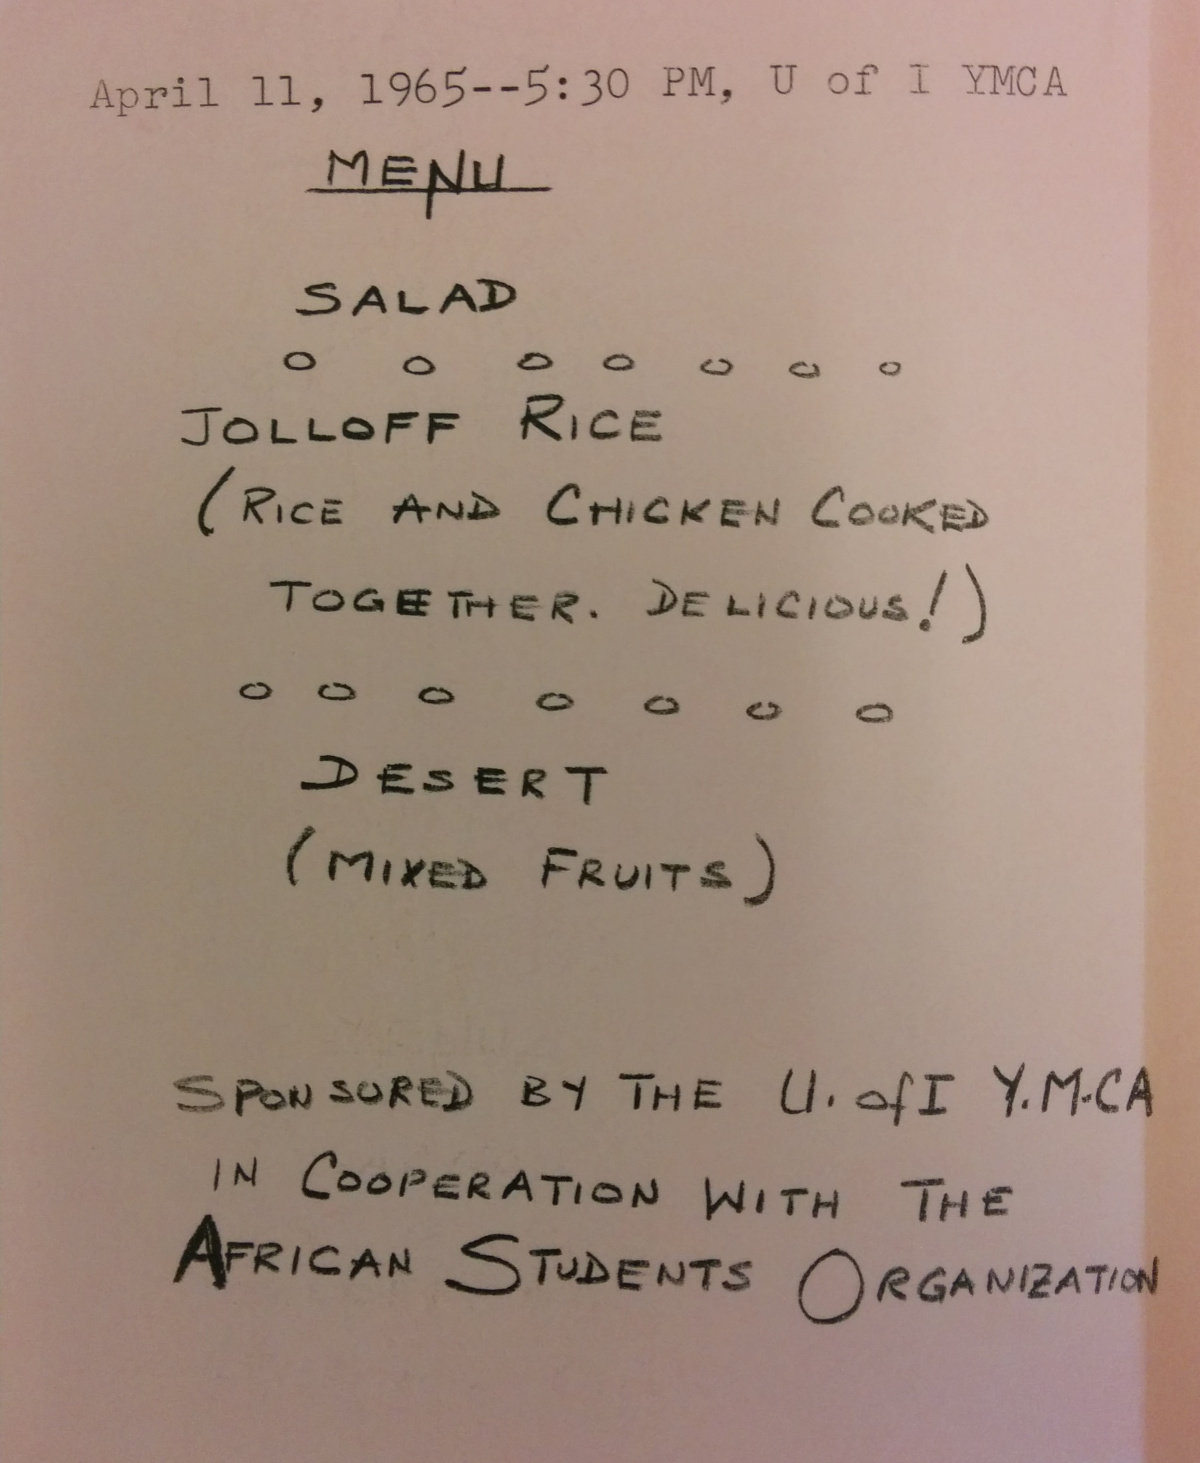 April 11, 1965--5:30 PM, U of I YMCA
MENU
SALAD
JOLLOFF RICE
(RICE AND CHICKEN COOKED
TOGETHER. DELICIOUS!)
DESERT
(MIXED FRUITS)
SPONSURED BY THE U. of I Y.M.CA
IN COOPERATION WITH THE
AFRICAN STUDENTS ORGANIZATION